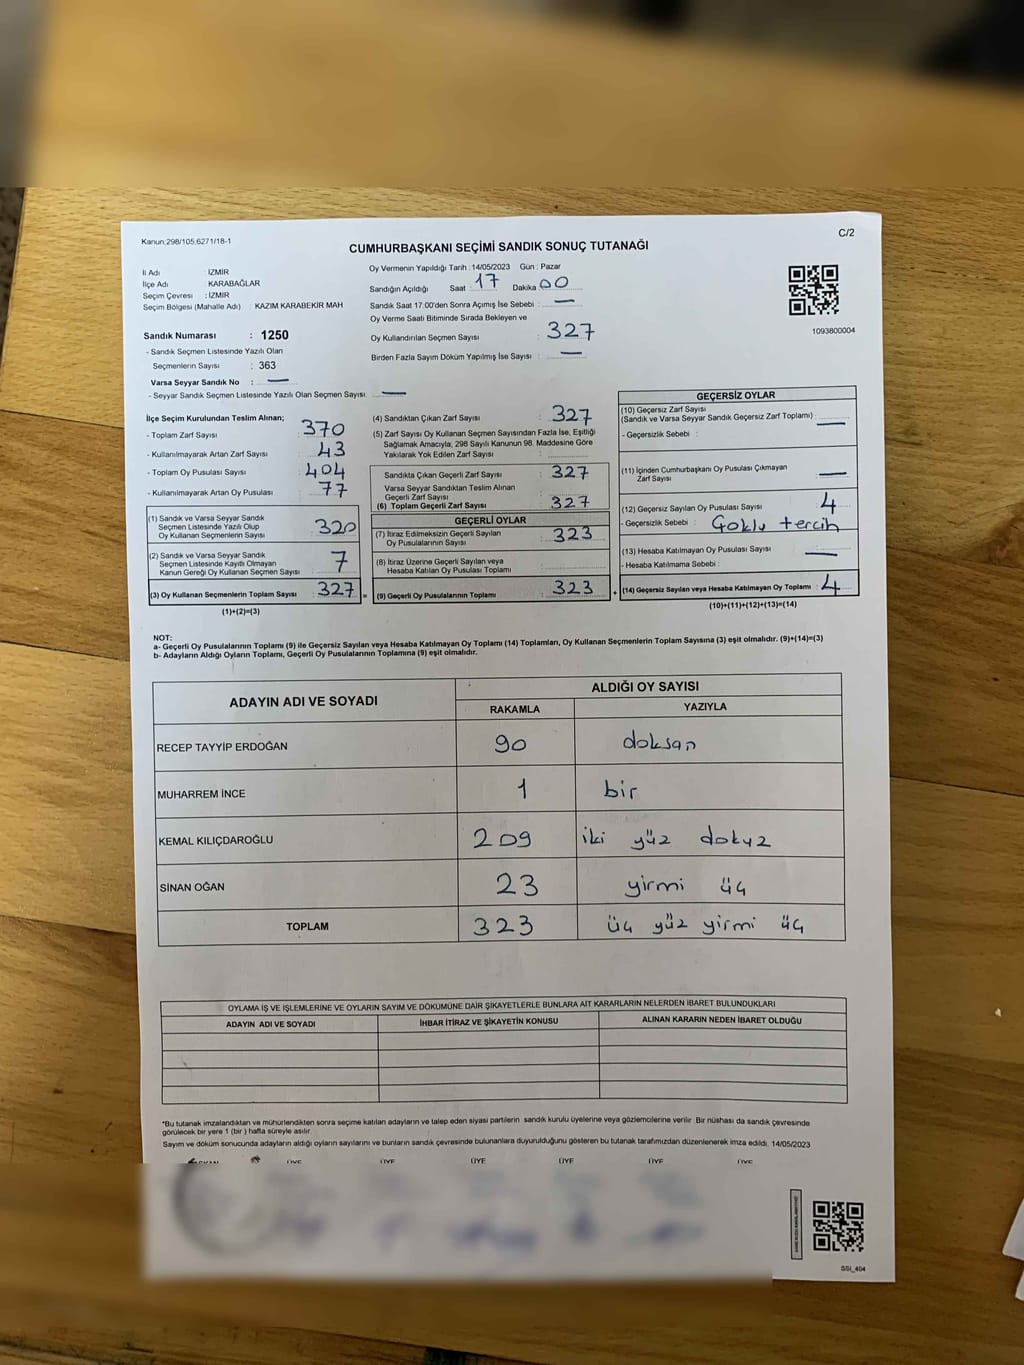 Kanun:298/105,6271/18-1
C/2
CUMHURBAŞKANI SEÇİMİ SANDIK SONUÇ TUTANAĞI
İl Adı : İZMİR
İlçe Adı : KARABAĞLAR
Seçim Çevresi : İZMİR
Seçim Bölgesi (Mahalle Adı) : KAZIM KARABEKİR MAH
Oy Vermenin Yapıldığı Tarih :14/05/2023 Gün : Pazar
Sandığın Açıldığı Saat : 17 Dakika : 00
Sandık Saat 17:00'den Sonra Açımış İse Sebebi : —
Oy Verme Saati Bitiminde Sırada Bekleyen ve
Oy Kullandırılan Seçmen Sayısı : 327
Birden Fazla Sayım Döküm Yapılmış İse Sayısı : —
1093800004
Sandık Numarası : 1250
- Sandık Seçmen Listesinde Yazılı Olan
Seçmenlerin Sayısı : 363
Varsa Seyyar Sandık No : —
- Seyyar Sandık Seçmen Listesinde Yazılı Olan Seçmen Sayısı: —
İlçe Seçim Kurulundan Teslim Alınan;
- Toplam Zarf Sayısı : 370
- Kullanılmayarak Artan Zarf Sayısı : 43
- Toplam Oy Pusulası Sayısı : 404
- Kullanılmayarak Artan Oy Pusulası : 77
(1) Sandık ve Varsa Seyyar Sandık
Seçmen Listesinde Yazılı Olup
Oy Kullanan Seçmenlerin Sayısı : 320
(2) Sandık ve Varsa Seyyar Sandık
Seçmen Listesinde Kayıtlı Olmayan
Kanun Gereği Oy Kullanan Seçmen Sayısı : 7
(3) Oy Kullanan Seçmenlerin Toplam Sayısı : 327 =
(1)+(2)=(3)
(4) Sandıktan Çıkan Zarf Sayısı : 327
(5) Zarf Sayısı Oy Kullanan Seçmen Sayısından Fazla İse, Eşitliği
Sağlamak Amacıyla, 298 Sayılı Kanunun 98. Maddesine Göre
Yakılarak Yok Edilen Zarf Sayısı :
Sandıkta Çıkan Geçerli Zarf Sayısı : 327
Varsa Seyyar Sandıktan Teslim Alınan
Geçerli Zarf Sayısı :
(6) Toplam Geçerli Zarf Sayısı : 327
GEÇERLİ OYLAR
(7) İtiraz Edilmeksizin Geçerli Sayılan
Oy Pusulalarının Sayısı : 323
(8) İtiraz Üzerine Geçerli Sayılan veya
Hesaba Katılan Oy Pusulası Toplamı :
(9) Geçerli Oy Pusulalarının Toplamı : 323 +
GEÇERSİZ OYLAR
(10) Geçersiz Zarf Sayısı
(Sandık ve Varsa Seyyar Sandık Geçersiz Zarf Toplamı) : —
- Geçersizlik Sebebi :
(11) İçinden Cumhurbaşkanı Oy Pusulası Çıkmayan
Zarf Sayısı : —
(12) Geçersiz Sayılan Oy Pusulası Sayısı : 4
- Geçersizlik Sebebi : Çoklu tercih
(13) Hesaba Katılmayan Oy Pusulası Sayısı : —
- Hesaba Katılmama Sebebi :
(14) Geçersiz Sayılan veya Hesaba Katılmayan Oy Toplamı : 4
(10)+(11)+(12)+(13)=(14)
NOT:
a- Geçerli Oy Pusulalarının Toplamı (9) ile Geçersiz Sayılan veya Hesaba Katılmayan Oy Toplamı (14) Toplamları, Oy Kullanan Seçmenlerin Toplam Sayısına (3) eşit olmalıdır. (9)+(14)=(3)
b- Adayların Aldığı Oyların Toplamı, Geçerli Oy Pusulalarının Toplamına (9) eşit olmalıdır.
ADAYIN ADI VE SOYADI ALDIĞI OY SAYISI
RAKAMLA YAZIYLA
RECEP TAYYİP ERDOĞAN 90 doksan
MUHARREM İNCE 1 bir
KEMAL KILIÇDAROĞLU 209 iki yüz dokuz
SİNAN OĞAN 23 yirmi üç
TOPLAM 323 üç yüz yirmi üç
OYLAMA İŞ VE İŞLEMLERİNE VE OYLARIN SAYIM VE DÖKÜMÜNE DAİR ŞİKAYETLERLE BUNLARA AİT KARARLARIN NELERDEN İBARET BULUNDUKLARI
ADAYIN ADI VE SOYADI İHBAR İTİRAZ VE ŞİKAYETİN KONUSU ALINAN KARARIN NEDEN İBARET OLDUĞU
*Bu tutanak imzalandıktan ve mühürlendikten sonra seçime katılan adayların ve talep eden siyasi partilerin sandık kurulu üyelerine veya gözlemcilerine verilir. Bir nüshası da sandık çevresinde
görülecek bir yere 1 (bir ) hafta süreyle asılır.
Sayım ve döküm sonucunda adayların aldığı oyların sayılarını ve bunların sandık çevresinde bulunanlara duyurulduğunu gösteren bu tutanak tarafımızdan düzenlenerek imza edildi. 14/05/2023
ÜYE ÜYE ÜYE ÜYE ÜYE ÜYE
SSI_404